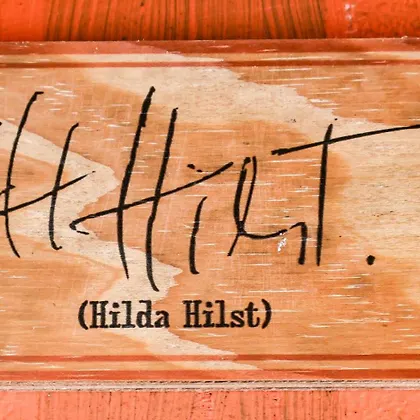 H. Hilst.
(Hilda Hilst)